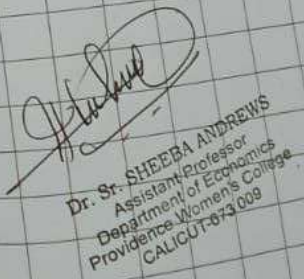 Dr. Sr. SHEEBA ANDREWS
Assistant Professor
Department of Economics
Providence Women's College
CALICUT-673 009